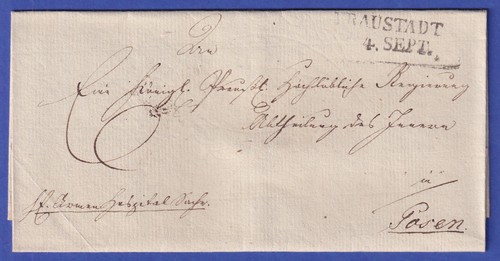 FRAUSTADT
4. SEPT.
An
Eine Königl. Preuß. Hochlöbliche Regierung
Abtheilung des Innern
in
Posen.
Armen Hospital Sache.